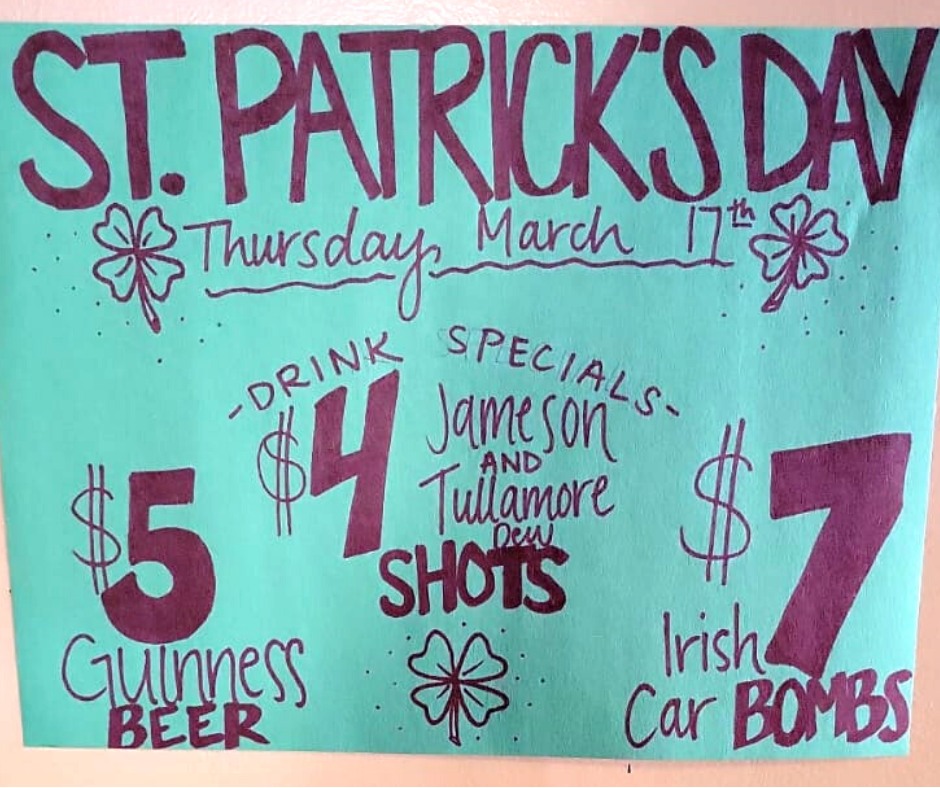 ST. PATRICK'S DAY
Thursday, March 17th
-DRINK SPECIALS-
$4 Jameson
AND
Tullamore
Dew
SHOTS
$5
Guinness
BEER
$7
Irish
Car BOMBS